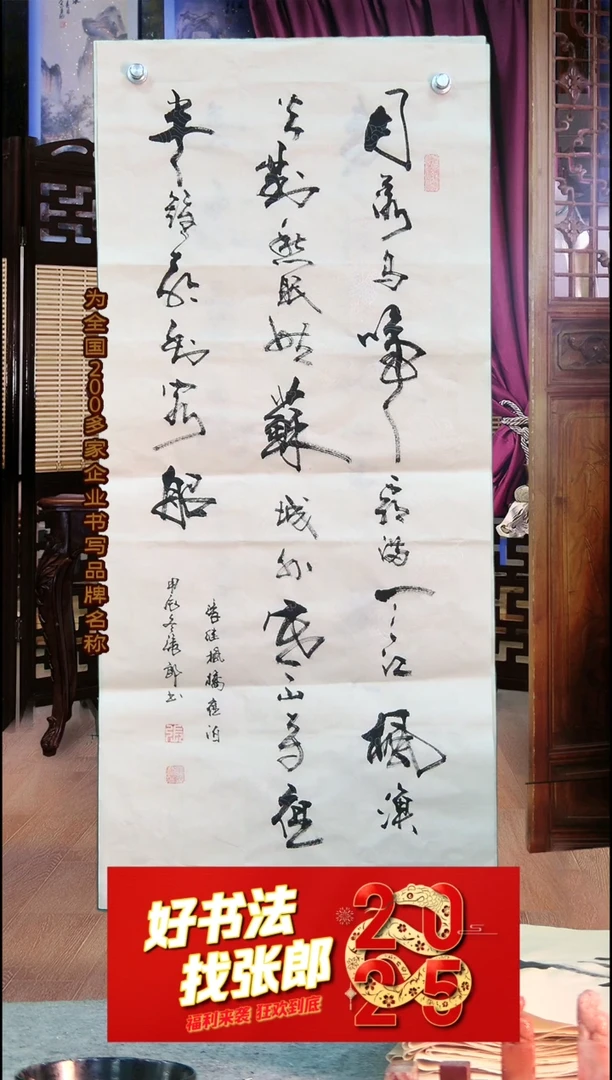 月落烏啼霜满天江楓漁
火對愁眠姑蘇城外寒山寺夜
半鐘聲到客船
張继楓橋夜泊
甲辰冬張郎书
为全国200多家企业书写品牌名称
好书法
找张郎
福利来袭 狂欢到底
2025